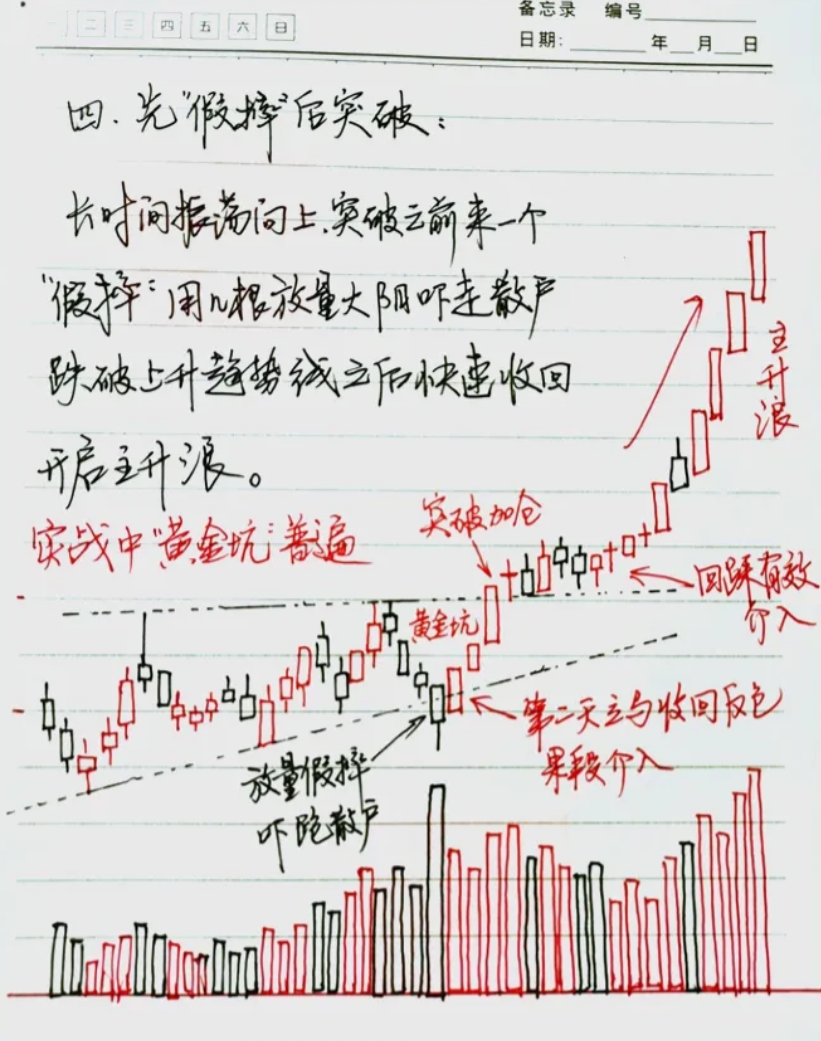 二 三 四 五 六 日
备忘录 编号
日期: 年 月 日
四.先"假摔"后突破:
长时间振荡向上.突破之前来一个
"假摔"用几根放量大阴吓走散户
跌破上升趋势线之后快速收回
开启主升浪。
实战中"黄金坑"普遍
主升浪
突破加仓
回踩有效
介入
黄金坑
第二天立马收回反包
果断介入
放量假摔
吓跑散户